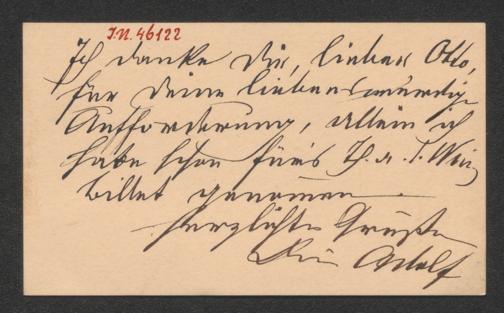 J.N. 46122
Ich danke Dir, lieber Otto,
für Deine liebenswürdige
Aufforderung, allein ich
habe schon für's Th. a. d. Wien
billet genommen.
Herzlichste Grüße
Dein Adolf